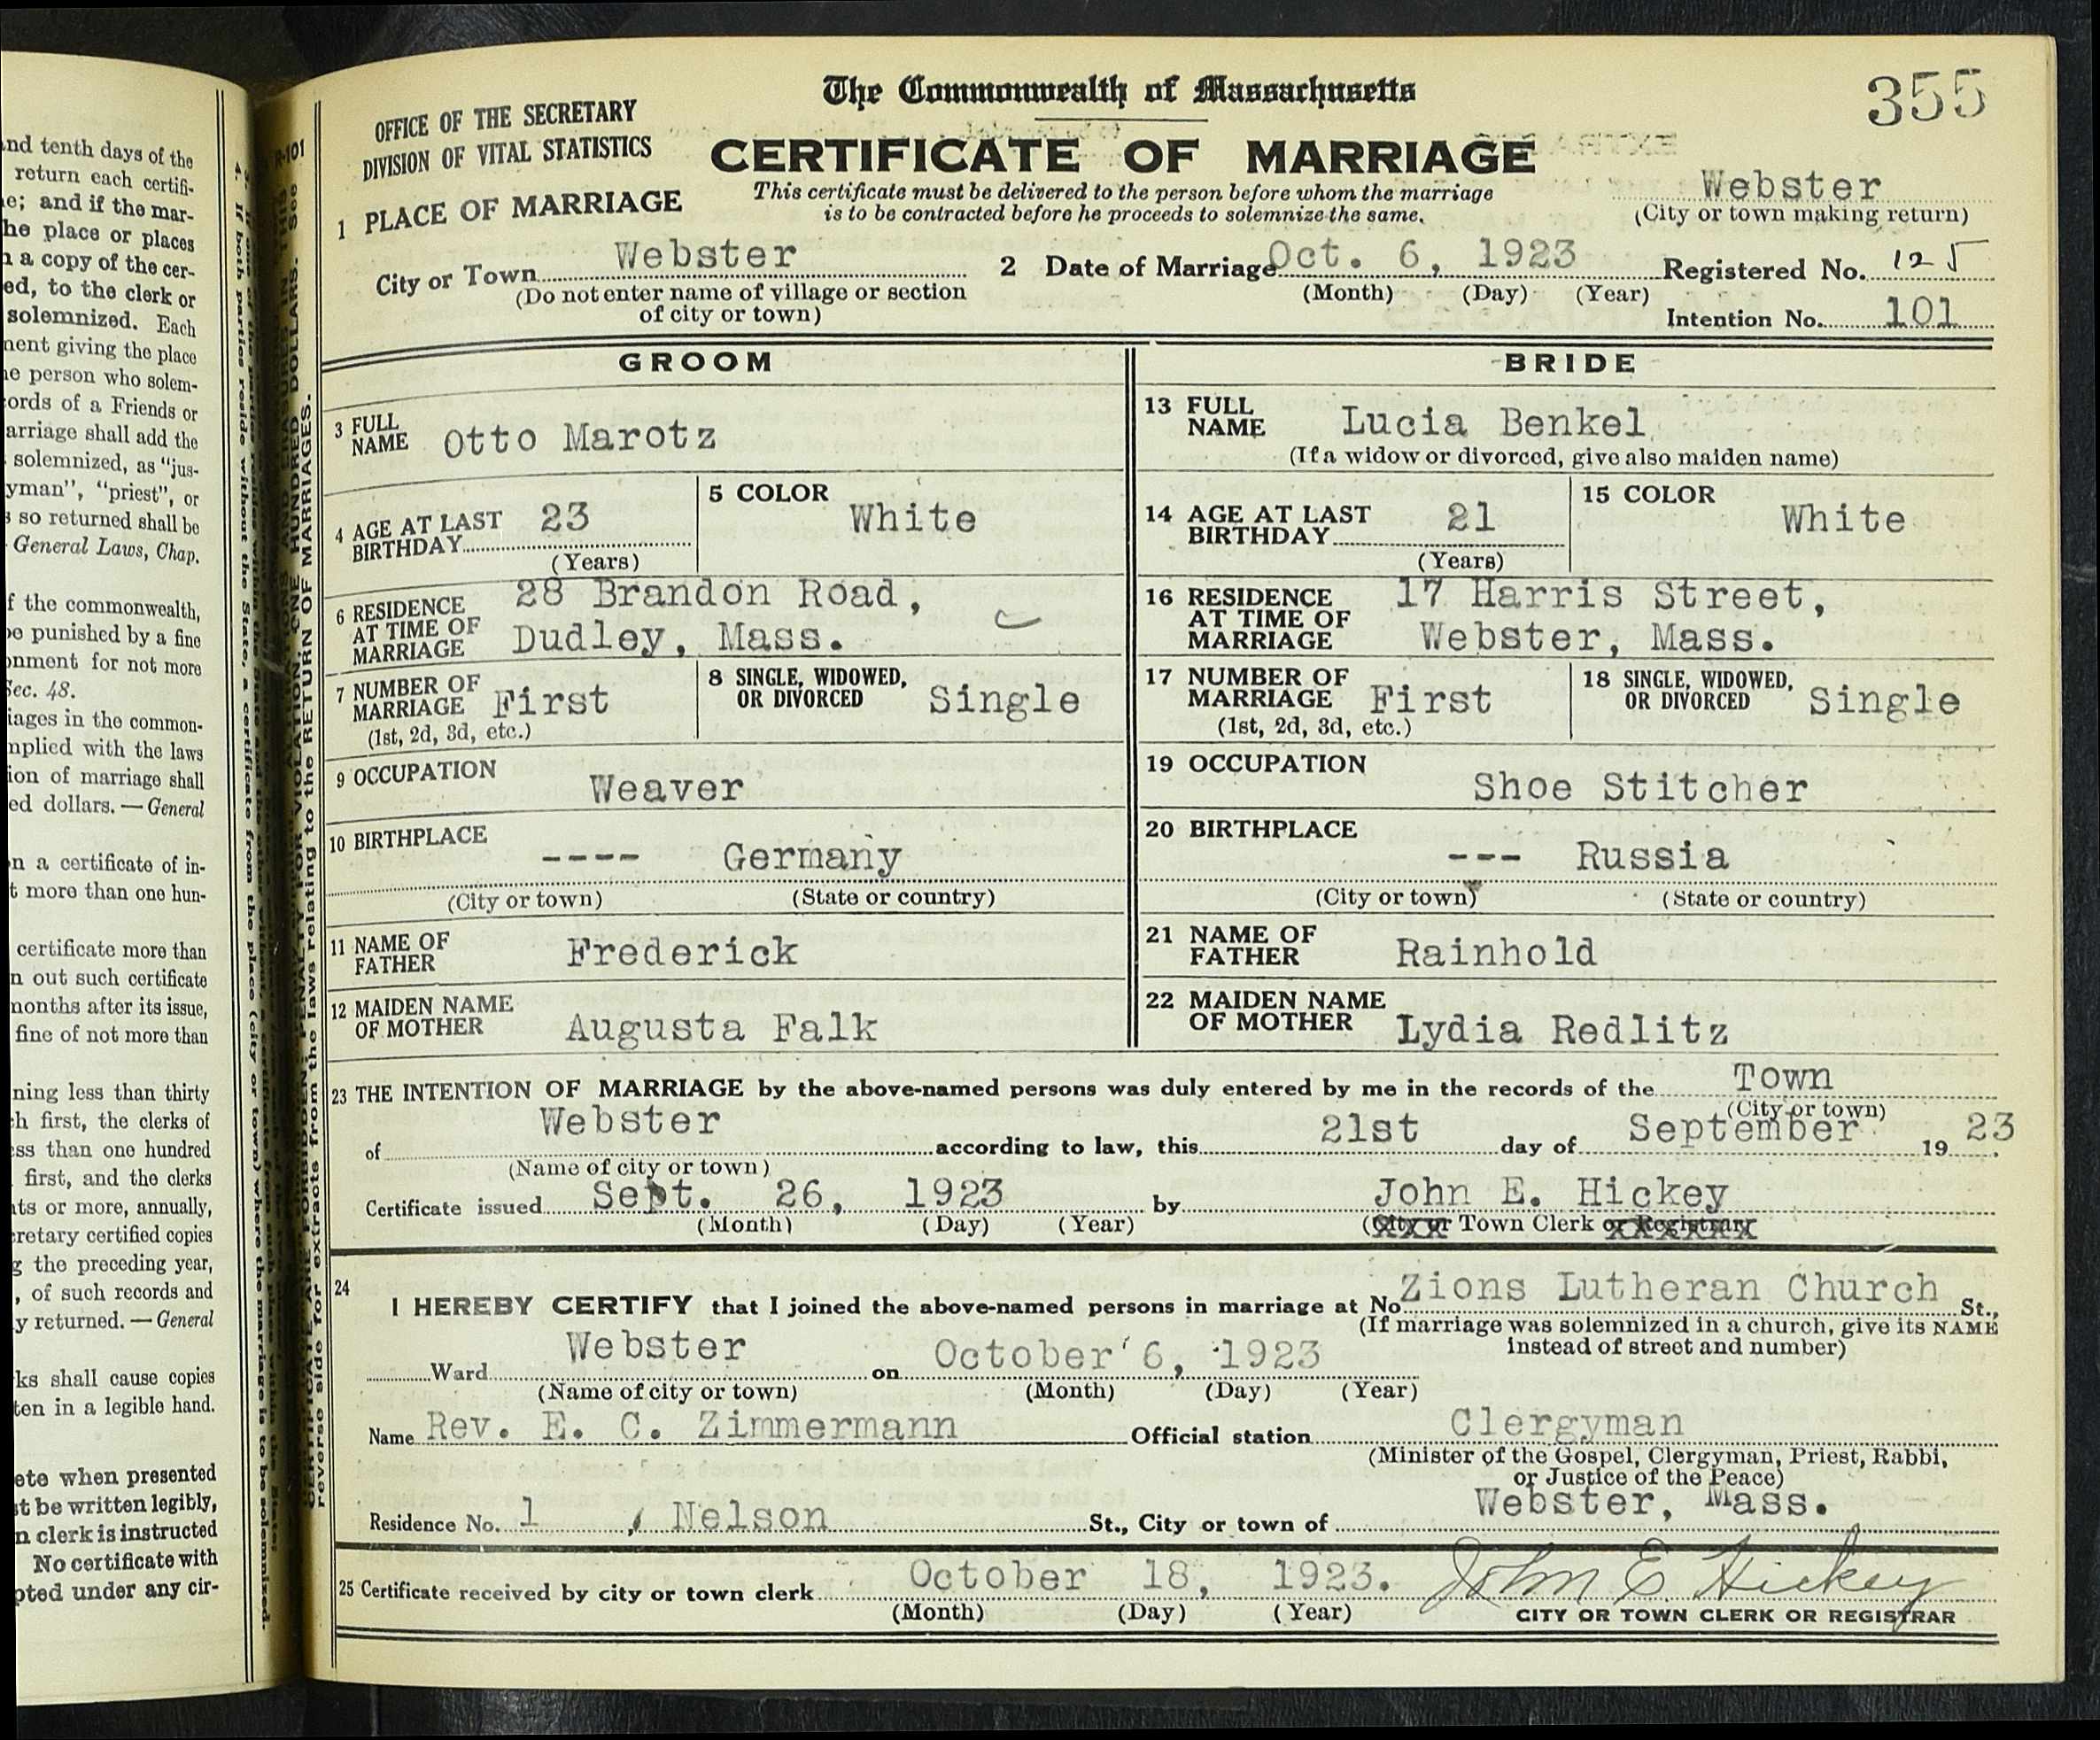 nd tenth days of the
return each certifi-
e; and if the mar-
he place or places
a copy of the cer-
ed, to the clerk or
solemnized. Each
nent giving the place
e person who solem-
ords of a Friends or
arriage shall add the
solemnized, as "jus-
yman", "priest", or
so returned shall be
General Laws, Chap.
f the commonwealth,
be punished by a fine
onment for not more
Sec. 48.
iages in the common-
mplied with the laws
ion of marriage shall
ed dollars. — General
n a certificate of in-
t more than one hun-
certificate more than
n out such certificate
months after its issue,
fine of not more than
ning less than thirty
h first, the clerks of
ss than one hundred
first, and the clerks
ts or more, annually,
cretary certified copies
g the preceding year,
, of such records and
y returned. — General
ks shall cause copies
ten in a legible hand.
ete when presented
st be written legibly,
n clerk is instructed
No certificate with
pted under any cir-
4. If both parties reside without the State, a certificate from the place (city or town) where the marriage is to be solemnized.
R-101
reverse side for extracts from the laws relating to the RETURN OF MARRIAGES.
The Commonwealth of Massachusetts
355
OFFICE OF THE SECRETARY
DIVISION OF VITAL STATISTICS
CERTIFICATE OF MARRIAGE
This certificate must be delivered to the person before whom the marriage
is to be contracted before he proceeds to solemnize the same.
Webster
(City or town making return)
1 PLACE OF MARRIAGE
City or Town Webster
(Do not enter name of village or section
of city or town)
2 Date of Marriage Oct. 6, 1923
(Month) (Day) (Year)
Registered No. 125
Intention No. 101
GROOM
BRIDE
3 FULL NAME Otto Marotz
13 FULL NAME Lucia Benkel
(If a widow or divorced, give also maiden name)
4 AGE AT LAST BIRTHDAY 23
(Years)
5 COLOR White
14 AGE AT LAST BIRTHDAY 21
(Years)
15 COLOR White
6 RESIDENCE AT TIME OF MARRIAGE 28 Brandon Road,
Dudley, Mass.
16 RESIDENCE AT TIME OF MARRIAGE 17 Harris Street,
Webster, Mass.
7 NUMBER OF MARRIAGE First
(1st, 2d, 3d, etc.)
8 SINGLE, WIDOWED, OR DIVORCED Single
17 NUMBER OF MARRIAGE First
(1st, 2d, 3d, etc.)
18 SINGLE, WIDOWED, OR DIVORCED Single
9 OCCUPATION Weaver
19 OCCUPATION Shoe Stitcher
10 BIRTHPLACE ---- Germany
(City or town) (State or country)
20 BIRTHPLACE --- Russia
(City or town) (State or country)
11 NAME OF FATHER Frederick
21 NAME OF FATHER Rainhold
12 MAIDEN NAME OF MOTHER Augusta Falk
22 MAIDEN NAME OF MOTHER Lydia Redlitz
23 THE INTENTION OF MARRIAGE by the above-named persons was duly entered by me in the records of the Town
(City or town)
of Webster according to law, this 21st day of September 19 23.
(Name of city or town)
Certificate issued Sept. 26, 1923 by John E. Hickey
(Month) (Day) (Year) (City or Town Clerk or Registrar)
24
I HEREBY CERTIFY that I joined the above-named persons in marriage at No. Zions Lutheran Church St.,
(If marriage was solemnized in a church, give its NAME
instead of street and number)
Ward Webster on October 6, 1923
(Name of city or town) (Month) (Day) (Year)
Name Rev. E. C. Zimmermann Official station Clergyman
(Minister of the Gospel, Clergyman, Priest, Rabbi,
or Justice of the Peace)
Residence No. 1 , Nelson St., City or town of Webster, Mass.
25 Certificate received by city or town clerk October 18, 1923. John E. Hickey
(Month) (Day) (Year) CITY OR TOWN CLERK OR REGISTRAR